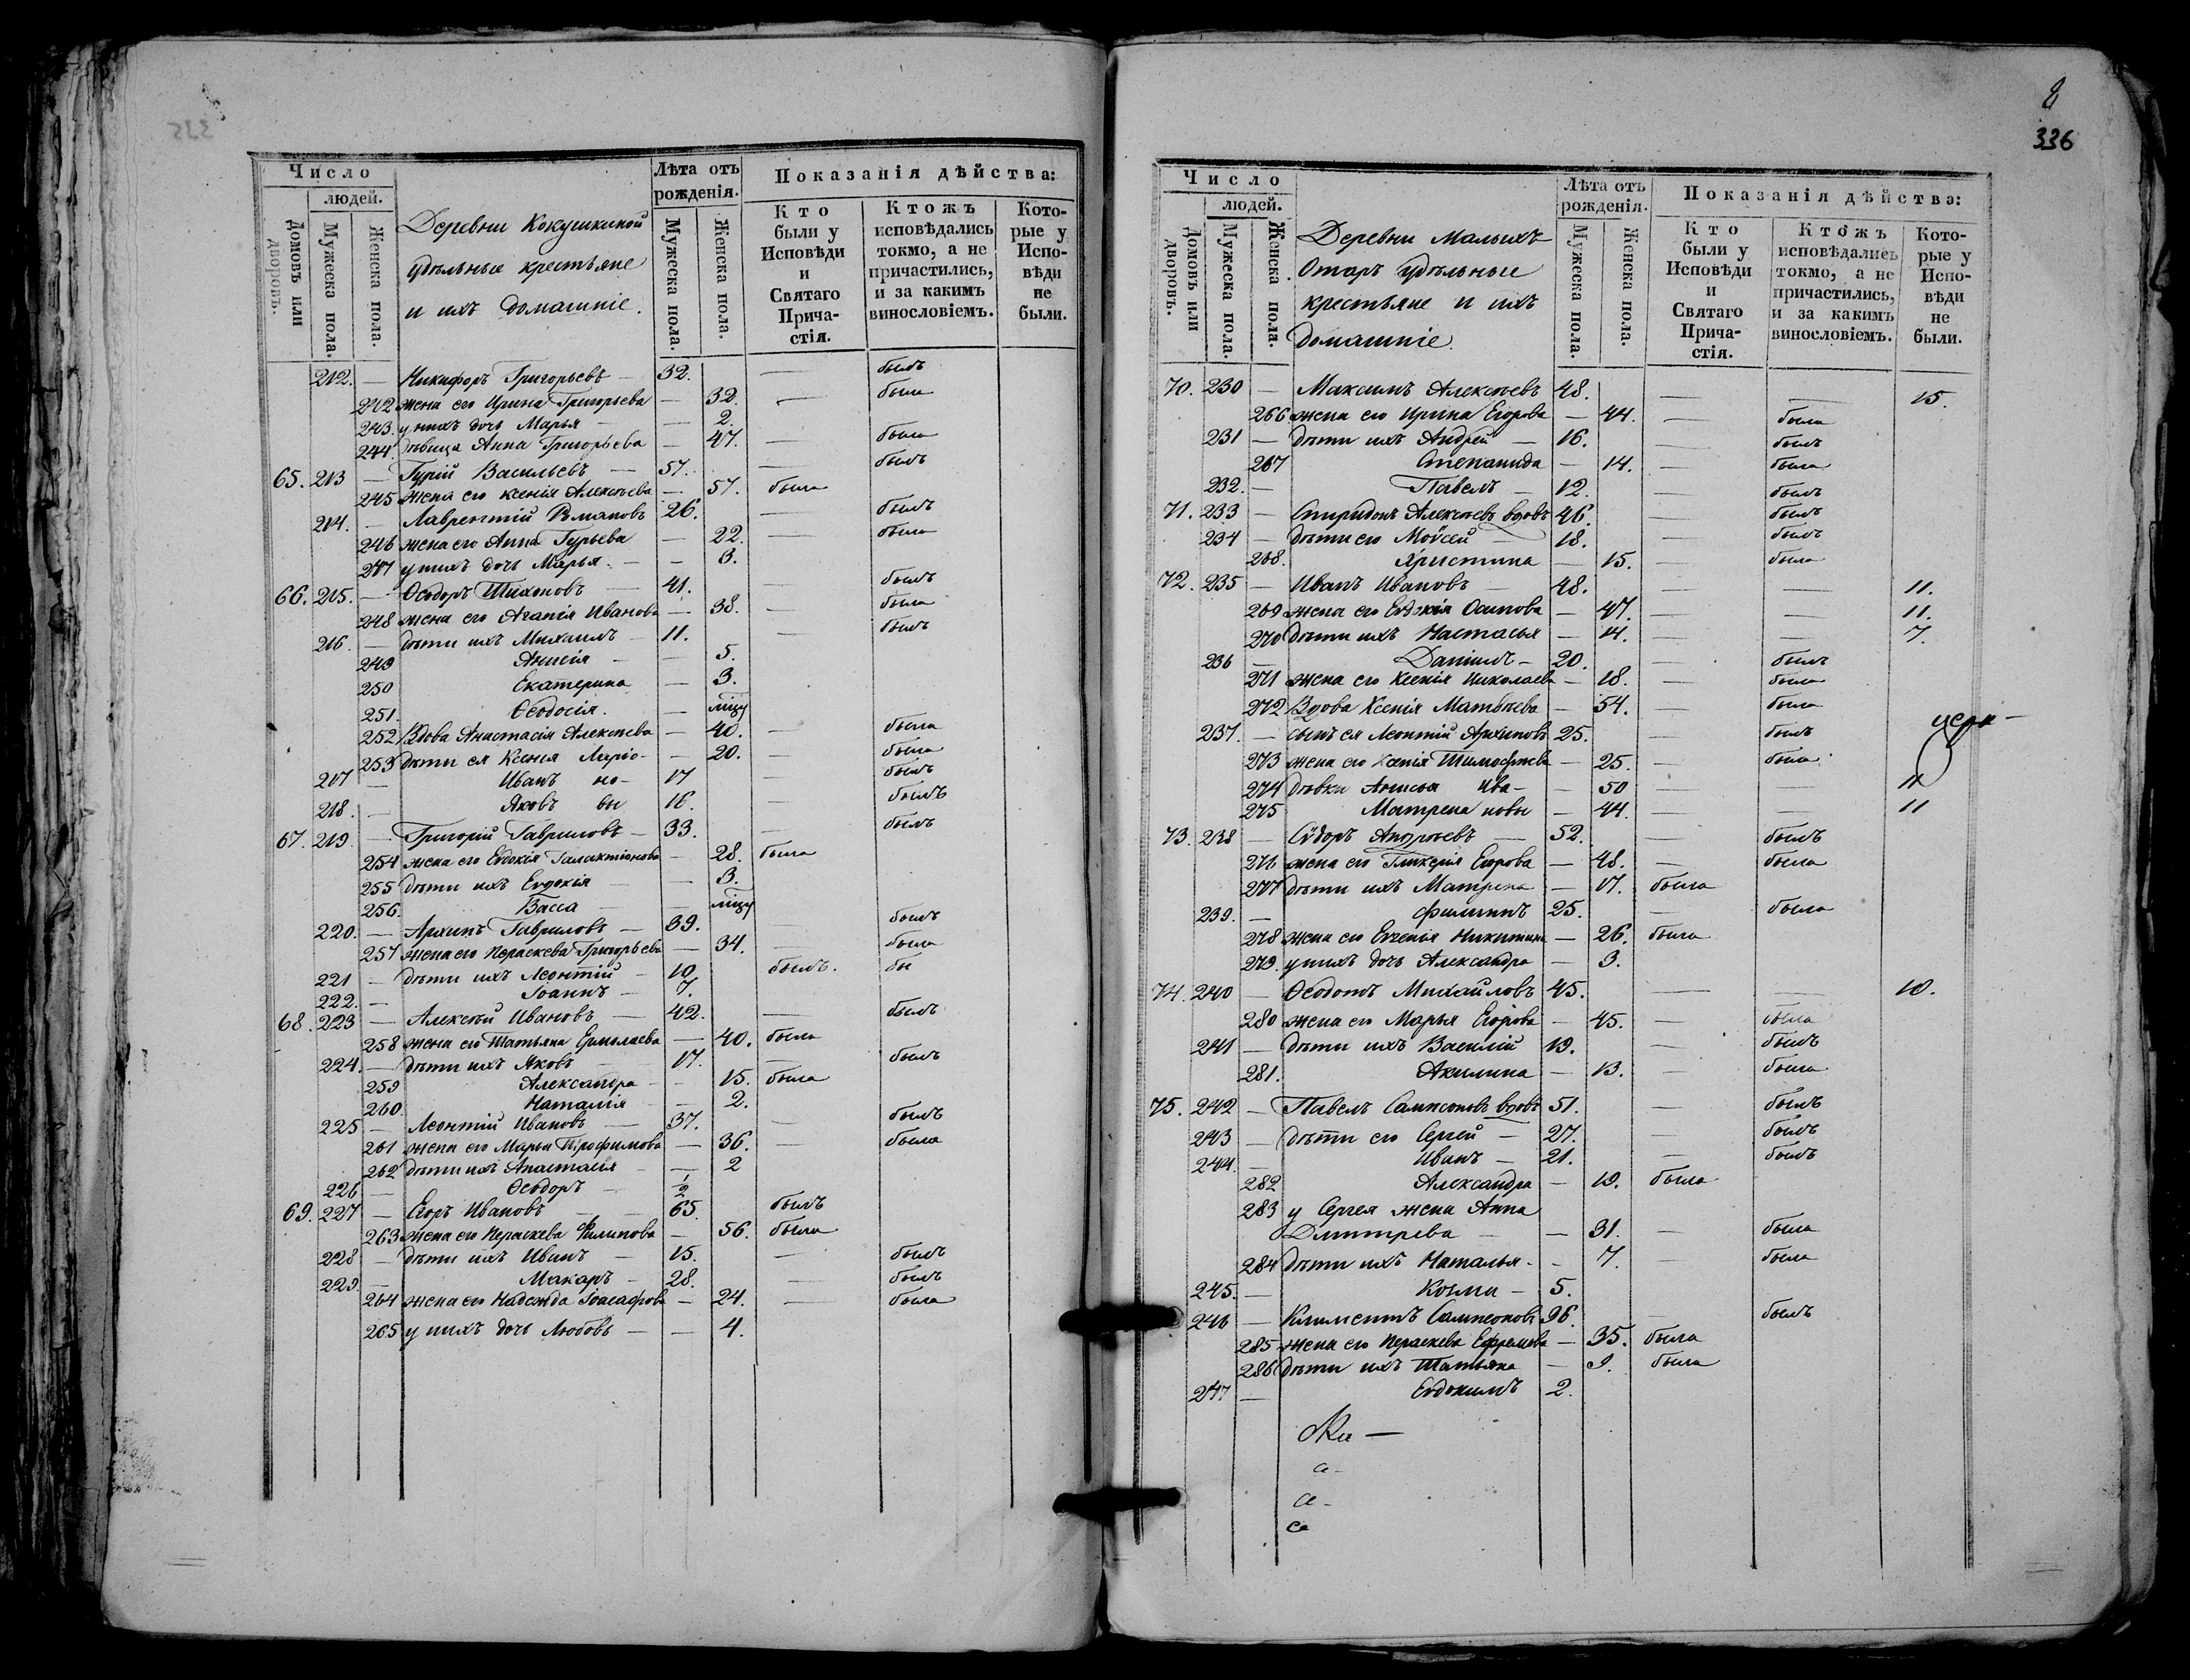 Число
людей.
Домовъ или дворовъ.
Мужеска пола.
Женска пола.
Деревни Кокушкиной
удѣльные крестьяне
и ихъ домашніе.
Лѣта отъ рожденія.
Мужеска пола.
Женска пола.
Показанія дѣйства:
Кто были у Исповѣди и Святаго Прича-стія.
Ктожъ исповѣдались токмо, а не причастились, и за какимъ винословіемъ.
Кото-рые у Испо-вѣди не были.
212. — Никифоръ Григорьевъ — 32. — былъ
242 жена его Ирина Григорьева — 32. — была
243. у нихъ дочь Марья — — 2.
244. дѣвица Анна Григорьева — 47. — была
65. 213 — Гурій Васильевъ — 57. — былъ
245 жена его Ксенія Алексѣева — 57. была
214. — Лаврентій Романовъ 26. — былъ
246 жена его Анна Гурьева — 22. — была
247 у нихъ дочь Марья. — — 3.
66. 215. — Ѳеодоръ Тихоновъ — 41. — былъ
248 жена его Агапія Иванова — 38. — была
216. — дѣти ихъ Михаилъ — 11. — былъ
249 Анисія — — 5.
250 Екатерина — 3.
251. Ѳеодосія. —
252 Вдова Анастасія Алексѣева — 40. — была
253 дѣти ея Ксенія Ларіо- — 20. — была
217 — Иванъ но- 17 — былъ
218. — Яковъ вы 16. — былъ
67. 219. — Григорій Гавриловъ — 33. — былъ
254 жена его Евдокія Галактіонова — 28. была
255 дѣти ихъ Евдокія — — 3.
256. Васса — —
220. — Архипъ Гавриловъ — 39. — былъ
257 жена его Пераскева Григорьева — 34. — была
221 — дѣти ихъ Леонтій — 10. былъ. бы
222. — Іоаннъ — 7.
68. 223 — Алексѣй Ивановъ — 42. — былъ
258 жена его Татьяна Ермолаева — 40. была
224. — дѣти ихъ Яковъ — 17. — былъ
259 Александра — — 15. была
260. Наталія — — 2.
225 — Леонтій Ивановъ — 37. — былъ
261 жена его Марья Трофимова — 36. — была
262 дѣти ихъ Анастасія — — 2
226 — Ѳеодоръ — 1/2
69. 227 — Егоръ Ивановъ — 65. былъ
263 жена его Пераскева Филипова — 56. была
228 — дѣти ихъ Иванъ — 15. — былъ
229. — Макаръ — 28. — былъ
264 жена его Надежда Іоасафова — 24. — была
265 у нихъ дочь Любовь — — 4.
2
336
Число
людей.
Домовъ или дворовъ.
Мужеска пола.
Женска пола.
Деревни Малыхъ
Отаръ удѣльные
крестьяне и ихъ
домашніе.
Лѣта отъ рожденія.
Мужеска пола.
Женска пола.
Показанія дѣйства:
Кто были у Исповѣди и Святаго Прича-стія.
Ктожъ исповѣдались токмо, а не причастились, и за какимъ винословіемъ.
Кото-рые у Испо-вѣди не были.
70. 230 — Максимъ Алексѣевъ 48. — — 15.
266 жена его Ирина Егорова — 44. — была
231 — дѣти ихъ Андрей — 16. — былъ
267 Степанида — 14. — была
232. — Павелъ — 12. — былъ
71. 233 — Спиридонъ Алексѣевъ вдовъ 46. — былъ
234 — дѣти его Моѵсей — 18. — былъ
268. Христина — 15. — была
72. 235 — Иванъ Ивановъ — 48. — — 11.
269 жена его Евдокія Осипова — 47. — — 11.
270 дѣти ихъ Настасья — 14. — — 7.
236 — Даніилъ — 20. — былъ
271 жена его Ксенія Николаева — 18. — была
272 Вдова Ксенія Матвѣева — 54. — была
237. — сынъ ея Леонтій Архиповъ 25. — былъ
273 жена его Ксенія Тимофѣева — 25. — была
274 дѣвки Анисья Ива- — 50 — — 11
275 Матрена новы — 44. — — 11
73. 238 — Сѵдоръ Андреевъ — 52. — былъ
276 жена его Гликерія Егорова — 48. — была
277 дѣти ихъ Матрена — 17. была
239. — Филиппъ 25. — была
278 жена его Евгенія Никитина — 26. была
279. у нихъ дочь Александра — 3.
74. 240 — Ѳеодотъ Михайловъ 45. — — 10.
280 жена его Марья Егорова — 45. — была
241 — дѣти ихъ Василій 19. — былъ
281. Акилина — 13. — была
75. 242 — Павелъ Сампсоновъ вдовъ 51. — былъ
243 — дѣти его Сергей — 27. — былъ
244. — Иванъ — 21. — былъ
282 Александра — 19. была
283 у Сергея жена Анна
Дмитрева — — 31. — была
284 дѣти ихъ Наталья — - 7. — была
245. — Козма — 5.
246 — Климентъ Сампсоновъ 36. — былъ
285 жена его Пераскева Ефремова — 35. была
286 дѣти ихъ Татьяна — 9. была
247 — Евдокимъ 2.